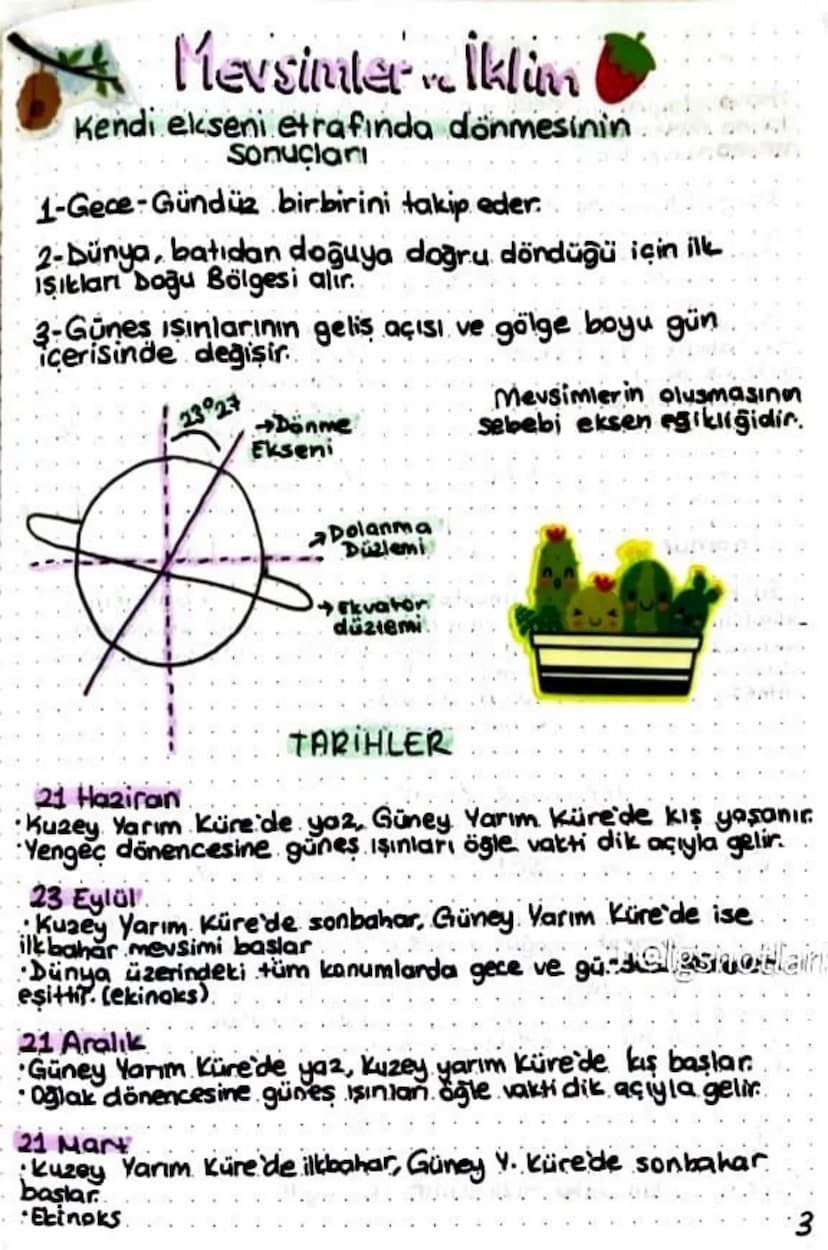 Mevsimler ve İklim
Kendi ekseni etrafında dönmesinin
sonuçları
1-Gece-Gündüz birbirini takip eder.
2-Dünya, batıdan doğuya doğru döndüğü için ilk
ışıkları Doğu Bölgesi alır.
3-Güneş ışınlarının geliş açısı ve gölge boyu gün
içerisinde değişir.
Mevsimlerin oluşmasının
sebebi eksen eğikliğidir.
23°27
→Dönme
Ekseni
→Dolanma
Düzlemi
→Ekvator
düzlemi
TARİHLER
21 Haziran
·Kuzey Yarım Küre'de yaz, Güney Yarım Küre'de kış yaşanır.
·Yengeç dönencesine güneş ışınları öğle vakti dik açıyla gelir.
23 Eylül
·Kuzey Yarım Küre'de sonbahar, Güney Yarım Küre'de ise
ilkbahar mevsimi başlar
·Dünya üzerindeki tüm konumlarda gece ve
@lgsnotlari
eşittir. (ekinoks)
21 Aralık
·Güney Yarım Küre'de yaz, Kuzey yarım Küre'de kış başlar.
·Oğlak dönencesine güneş ışınları öğle vakti dik açıyla gelir.
21 Mart
·Kuzey Yarım Küre'de ilkbahar, Güney Y. Küre'de sonbahar
başlar.
·Ekinoks
3